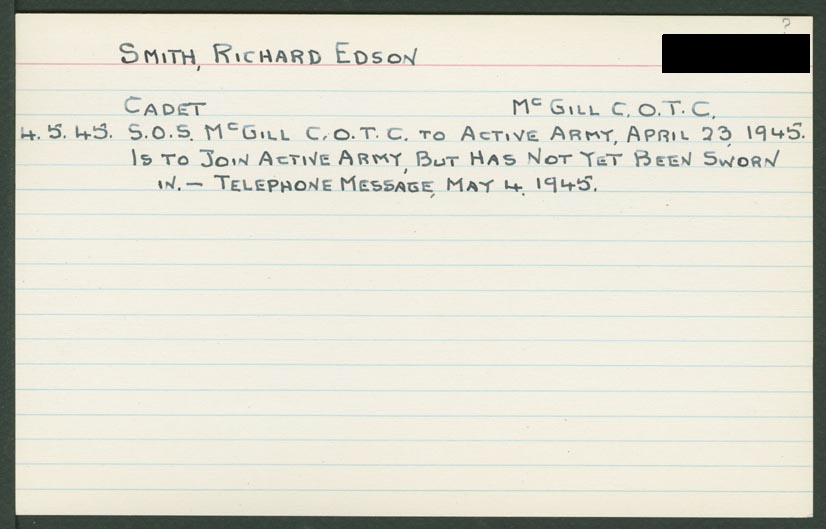 ?
Smith, Richard Edson
Cadet McGill C.O.T.C.
4.5.45. S.O.S. McGill C.O.T.C. to Active Army, April 23, 1945.
Is to Join Active Army, But Has Not Yet Been Sworn
in. – Telephone Message, May 4, 1945.